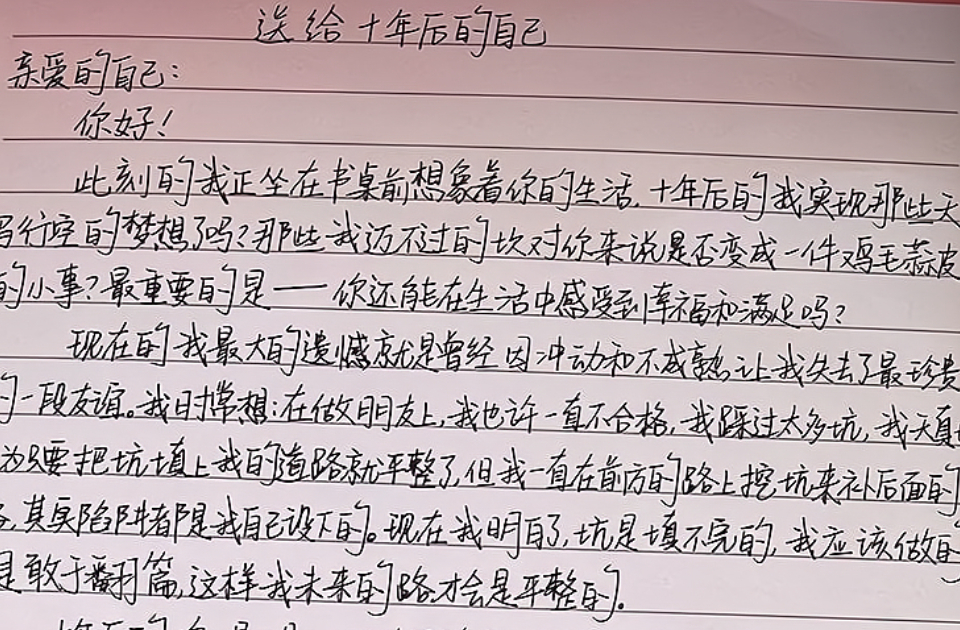 送给十年后的自己
亲爱的自己:
你好!
此刻的我正坐在书桌前想象着你的生活,十年后的我实现那些天
马行空的梦想了吗?那些我迈不过的坎对你来说是否变成一件鸡毛蒜皮
的小事?最重要的是——你还能在生活中感受到幸福和满足吗?
现在的我最大的遗憾就是曾经因冲动和不成熟,让我失去了最珍贵
的一段友谊。我时常想:在做朋友上,我也许一直不合格,我踩过太多坑,我天真
为只要把坑填上我的道路就平整了,但我一直在前方的路上挖坑来补后面的
,其实陷阱都是我自己设下的。现在我明白了,坑是填不完的,我应该做的
是敢于翻篇,这样我未来的路才会是平整的。